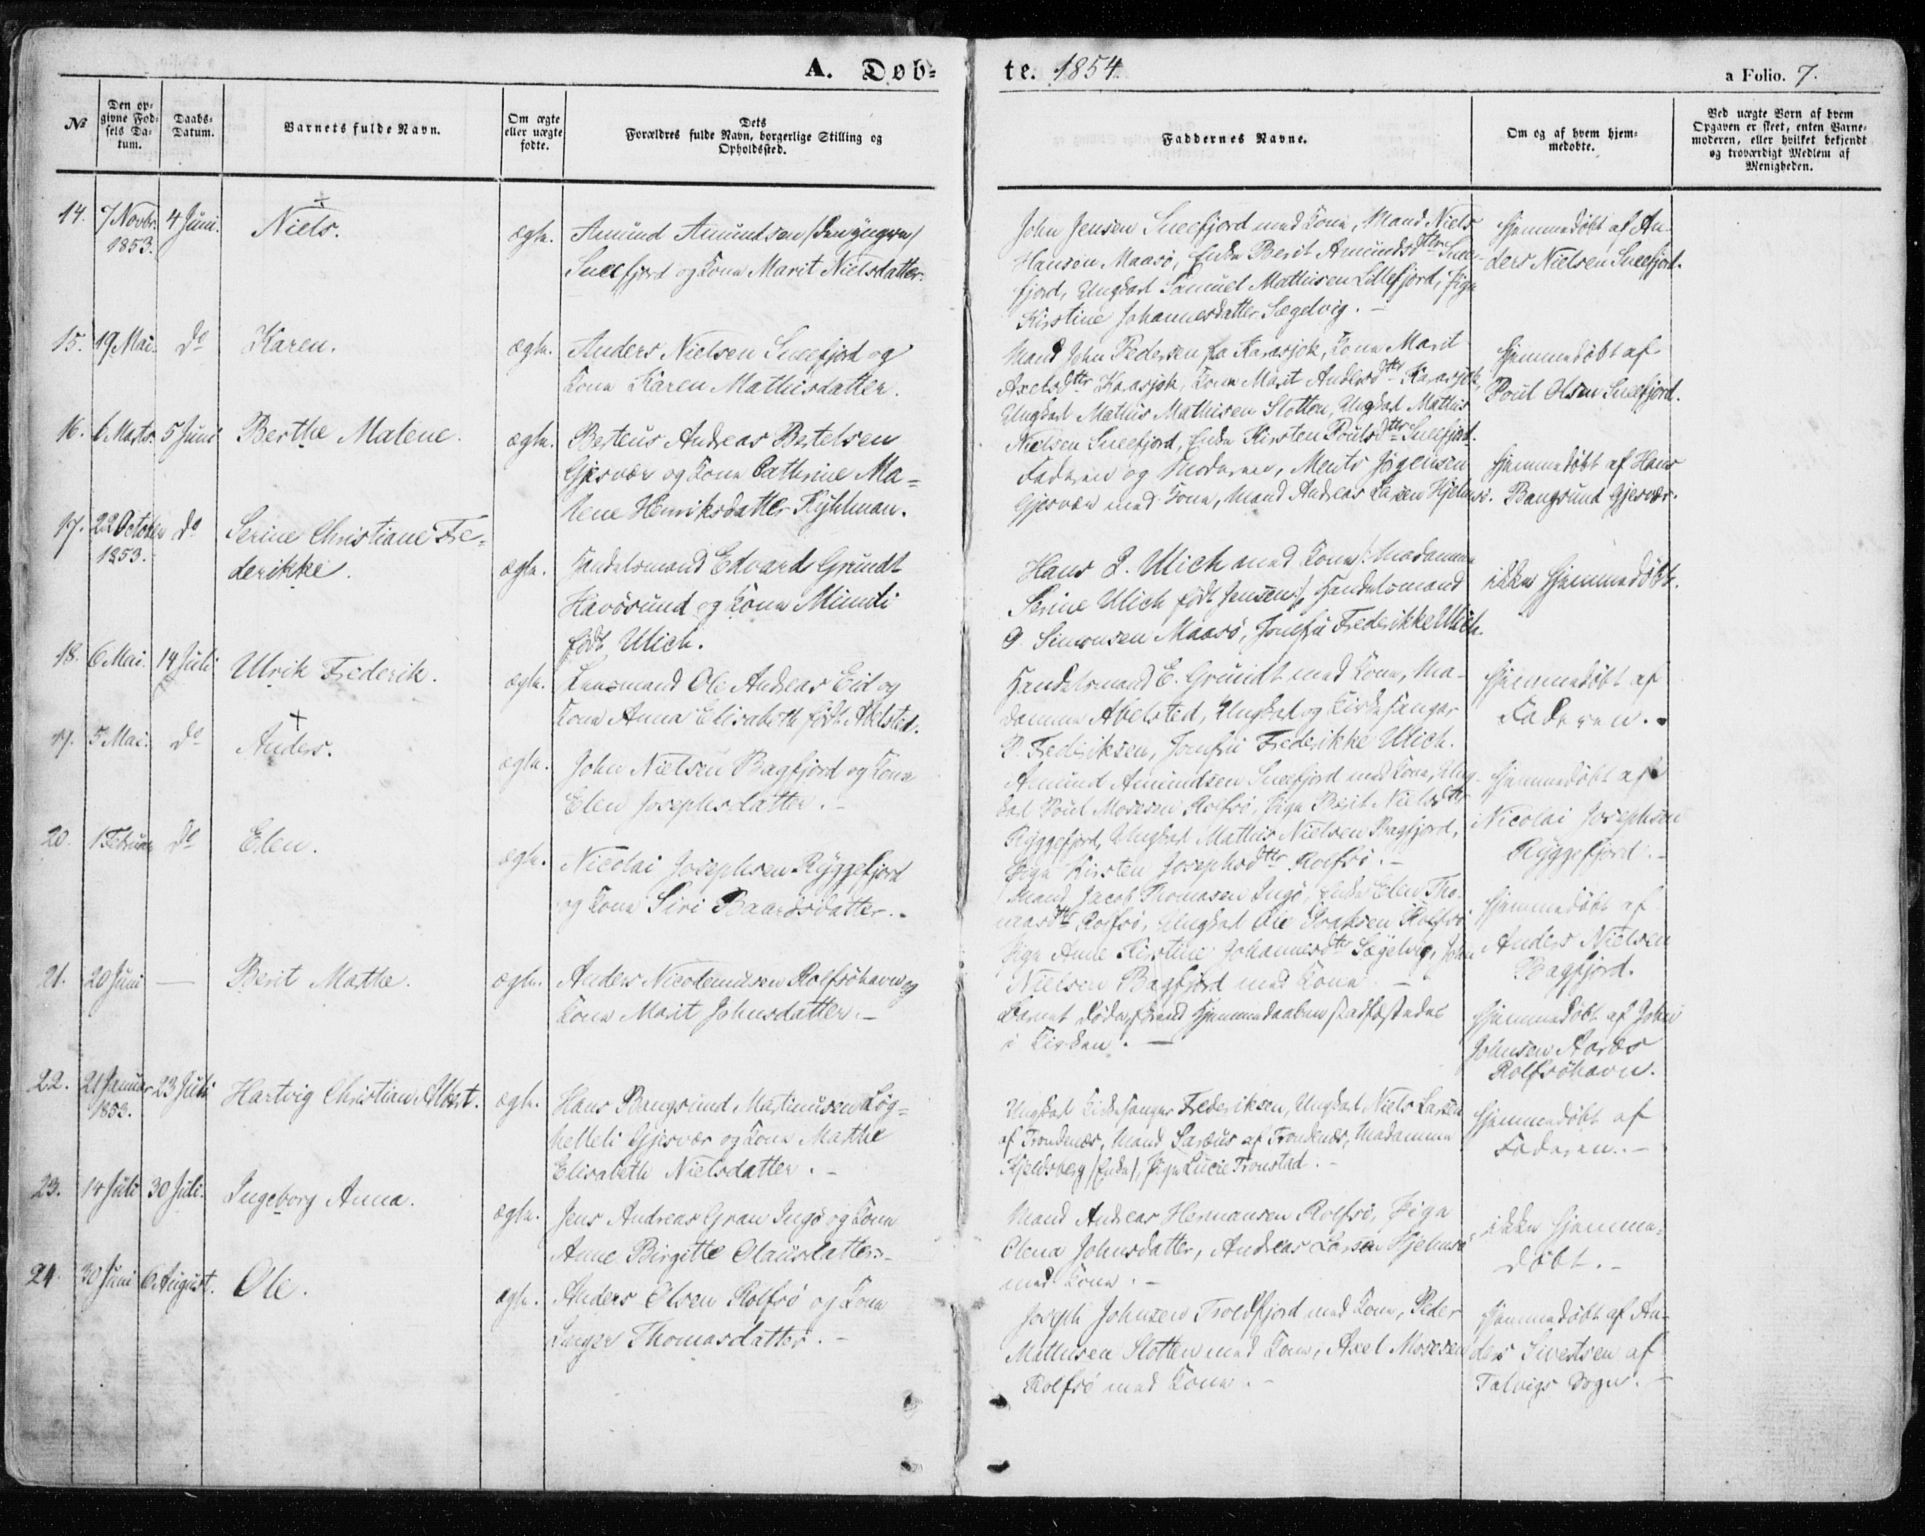 A. Døb=
te. 1854.
a Folio. 7.
No
Den op-
givne Fød-
sels Da-
tum.
Daabs-
Datum.
Barnets fulde Navn.
Om ægte
eller uægte
fødte.
Dets
Forældres fulde Navn, borgerlige Stilling og
Opholdssted.
Faddernes Navne.
Om og af hvem hjem=
medøbte.
Ved uægte Børn af hvem
Opgaven er skeet, enten Barne-
moderen, eller hvilket bekjendt
og troværdigt Medlem af
Menigheden.
14. 7 Novbr. 1853. 4 Juni. Niels. ægte.
Amund Amundsen /den yngere/
Sneefjord og Kone Marit Nielsdatter.
John Jensen Sneefjord med Kone, Mand Niels
Hansen Maasö, Enke Berit Amundsdttr Snee-
fjord, Ungkarl Samuel Mathisen Lillefjord, Pige
Kirstine Johannesdatter Sægelvig. -
Hjemmedöbt af An-
ders Nielsen Sneefjord.
15. 19 Mai. do Karen. ægte.
Anders Nielsen Sneefjord og
Kone Karen Mathisdatter.
Mand John Pedersen fra Karasjok, Kone Marit
Axelsdttr Karasjok, Kone Marit Andersdttr Karasjok,
Ungkarl Mathis Mathisen Slotten, Ungkarl Mathis
Nielsen Sneefjord, Enke Kirsten Poulsdttr Sneefjord.
Hjemmedöbt af
Poul Olsen Sneefjord.
16. 6 Marts. 5 Juni Berthe Malene. ægte.
Berteus Andreas Bertelsen
Gjesvær og Kone Cathrine Ma=
lene Henriksdatter Kyhlman.
Faderen og Moderen, Ments Jörgensen
Gjesvær med Kone, Mand Andreas Larsen Hjelmsö.
Hjemmedöbt af Hans
Bangsund Gjesvær.
17. 22 October 1853. do
Serine Christiane Fre-
derikke. ægte.
Handelsmand Edvard Grundt
Havösund og Kone Mundi
født Ulich.
Hans L. Ulich med Kone /: Madamme
Serine Ulich födt Jensen :/, Handelsmand
P. Simonsen Maasö, Jomfru Frederikke Ulich.
ikke hjemmedöbt.
18. 6 Mai. 14 Juli Ulrik Frederik. ægte.
Lensmand Ole Andreas Eid og
Kone Anna Elisabeth födt Abelsted.
Handelsmand E. Grundt med Kone, Ma-
damme Abelsted, Ungkarl og Kirkesanger
P. Frederiksen, Jomfru Frederikke Ulich.
Hjemmedöbt af
Faderen.
19. 5 Mai. do Anders. ægte.
John Nielsen Bagfjord og Kone
Elen Josephsdatter. -
Amund Amundsen Sneefjord med Kone, Ung-
karl Poul Mosesen Rolfsö, Pige Berit Nielsdttr
Ryggefjord, Ungkarl Mathis Nielsen Bagfjord,
Pige Kirsten Josephsdttr Rolfsö. -
Hjemmedöbt af
Nicolai Josephsen
Ryggefjord. -
20. 1 Februar do Elen. ægte.
Nicolai Josephsen Ryggefjord
og Kone Siri Baardsdatter. -
Mand Jacob Thomasen Ingö, Enke Elen Tho-
masdttr Rolfsö, Ungkarl Ole Isaksen Rolfsö
Pige Anne Kirstine Johannesdttr Sægelvig, John
Nielsen Bagfjord med Kone. -
Hjemmedöbt af
Anders Nielsen
Bagfjord.
21. 20 Juni - Berit Marthe. ægte.
Anders Nicodemusen Rolfsöhavn og
Kone Marit Johnsdatter. -
Barnet döde förend Hjemmedaaben stadfæstedes
i Kirken. -
Hjemmedöbt af John
Johnsen
Rolfsöhavn.
22. 21 Januar 23 Juli Hartvig Christian Albert. ægte.
Hans Bangsund Martinusen Løg-
helleli Gjesvær og Kone Marthe
Elisabeth Nielsdatter. -
Ungkarl Kirkesanger Frederiksen, Ungkarl Niels Larsen
af Trondenæs, Mand af Trondenæs, Madamme
Kjeldsberg /Enke/, Pige Lucie Tronstad. -
Hjemmedöbt af
Faderen. -
23. 14 Juli 30 Juli. Ingeborg Anna. ægte.
Jens Andreas Gran Ingö og Kone
Anne Birgitte Olausdatter. -
Mand Andreas Hermansen Rolfsö, Pige
Olena Johnsdatter, Andreas Larsen Hjelmsö
med Kone. -
ikke hjemme-
döbt. -
24. 30 Juni 6 August. Ole. ægte.
Anders Olsen Rolfsö og Kone
Inger Thomasdatter. -
Joseph Johnsen Troldfjord med Kone, Peder
Mathisen Slotten med Kone, Axel Mosesen
Rolfsö med Kone. -
Hjemmedöbt af An-
ders Sivertsen af
Talvigs Sogn. -